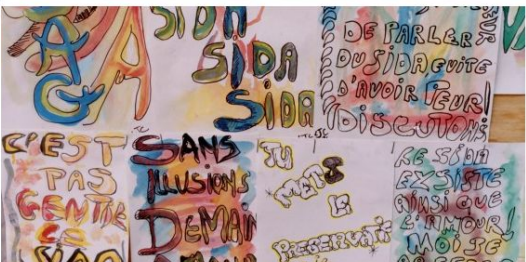 SIDA
SIDA
SIDA
DE PARLER
DU SIDA EVITE
D'AVOIR PEUR!
DISCUTONS
C'EST
PAS
GENTIL
SANS
ILLUSIONS
DEMAIN
TU
METS
LE
PRESERVATIF
LE SIDA
EXISTE
AINSI QUE
L'AMOUR!
MOI JE